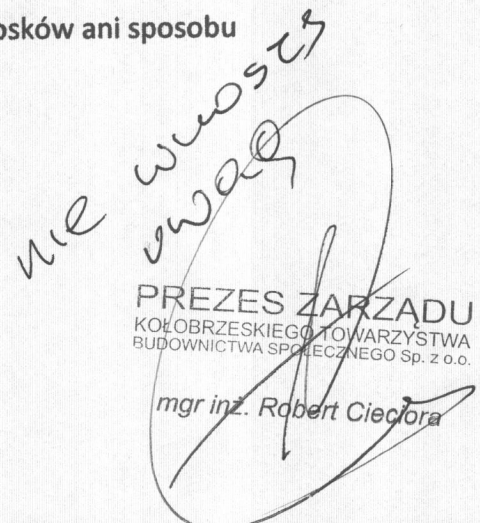 osków ani sposobu
nie wnoszę
uwag
PREZES ZARZĄDU
KOŁOBRZESKIEGO TOWARZYSTWA
BUDOWNICTWA SPOŁECZNEGO Sp. z o.o.
mgr inż. Robert Cieciora